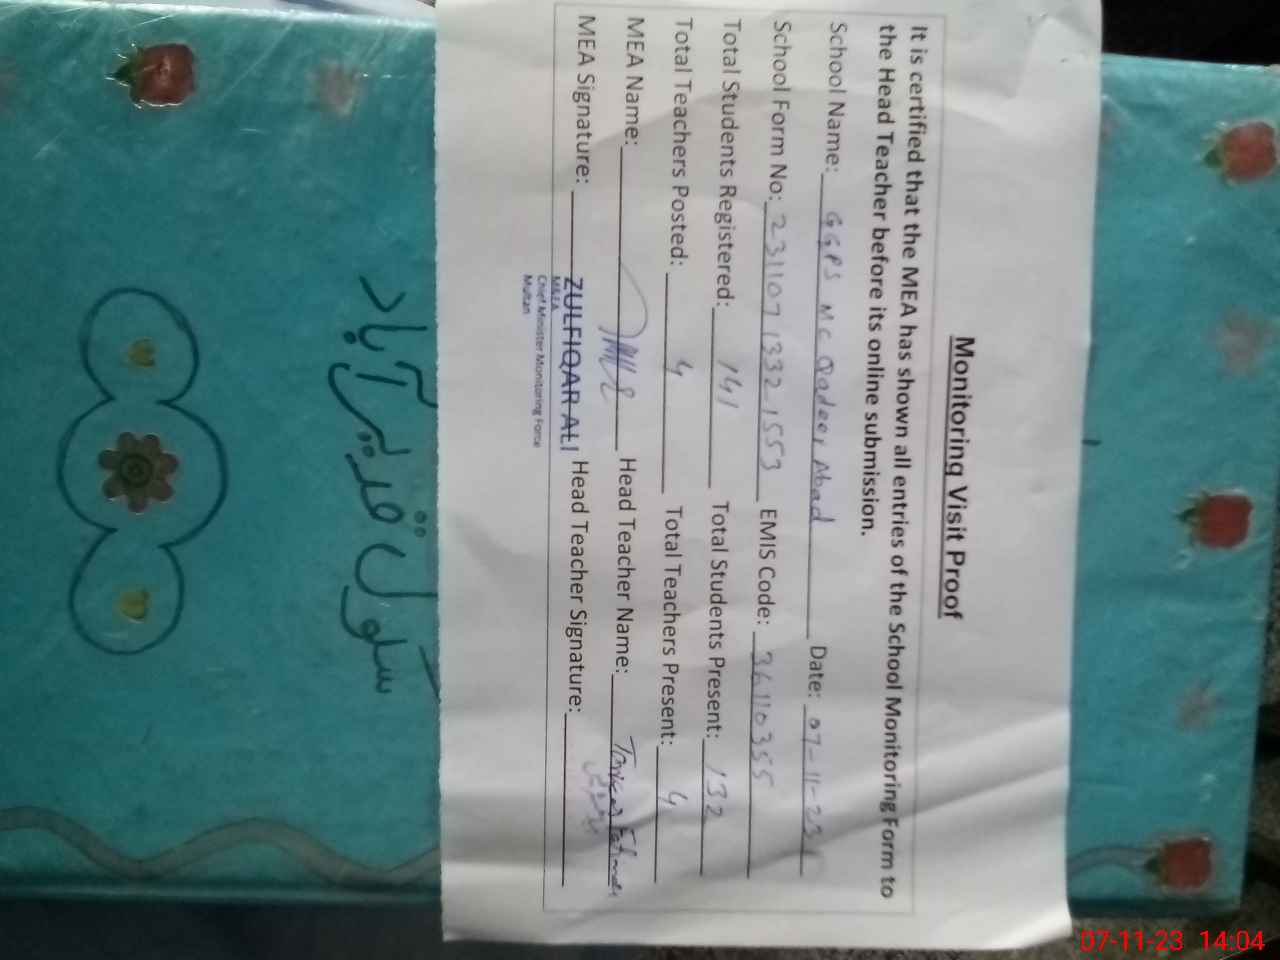 Monitoring Visit Proof
It is certified that the MEA has shown all entries of the School Monitoring Form to
the Head Teacher before its online submission.
School Name: GGPS MC Qadeer Abad Date: 07-11-23
School Form No: 231107 1332 1553 EMIS Code: 36110355
Total Students Registered: 141 Total Students Present: 132
Total Teachers Posted: 4 Total Teachers Present: 4
MEA Name: Head Teacher Name:
MEA Signature: ZULFIQAR ALI Head Teacher Signature:
MEA
Chief Minister Monitoring Force
Multan
سکول قدیر آباد
07-11-23 14:04